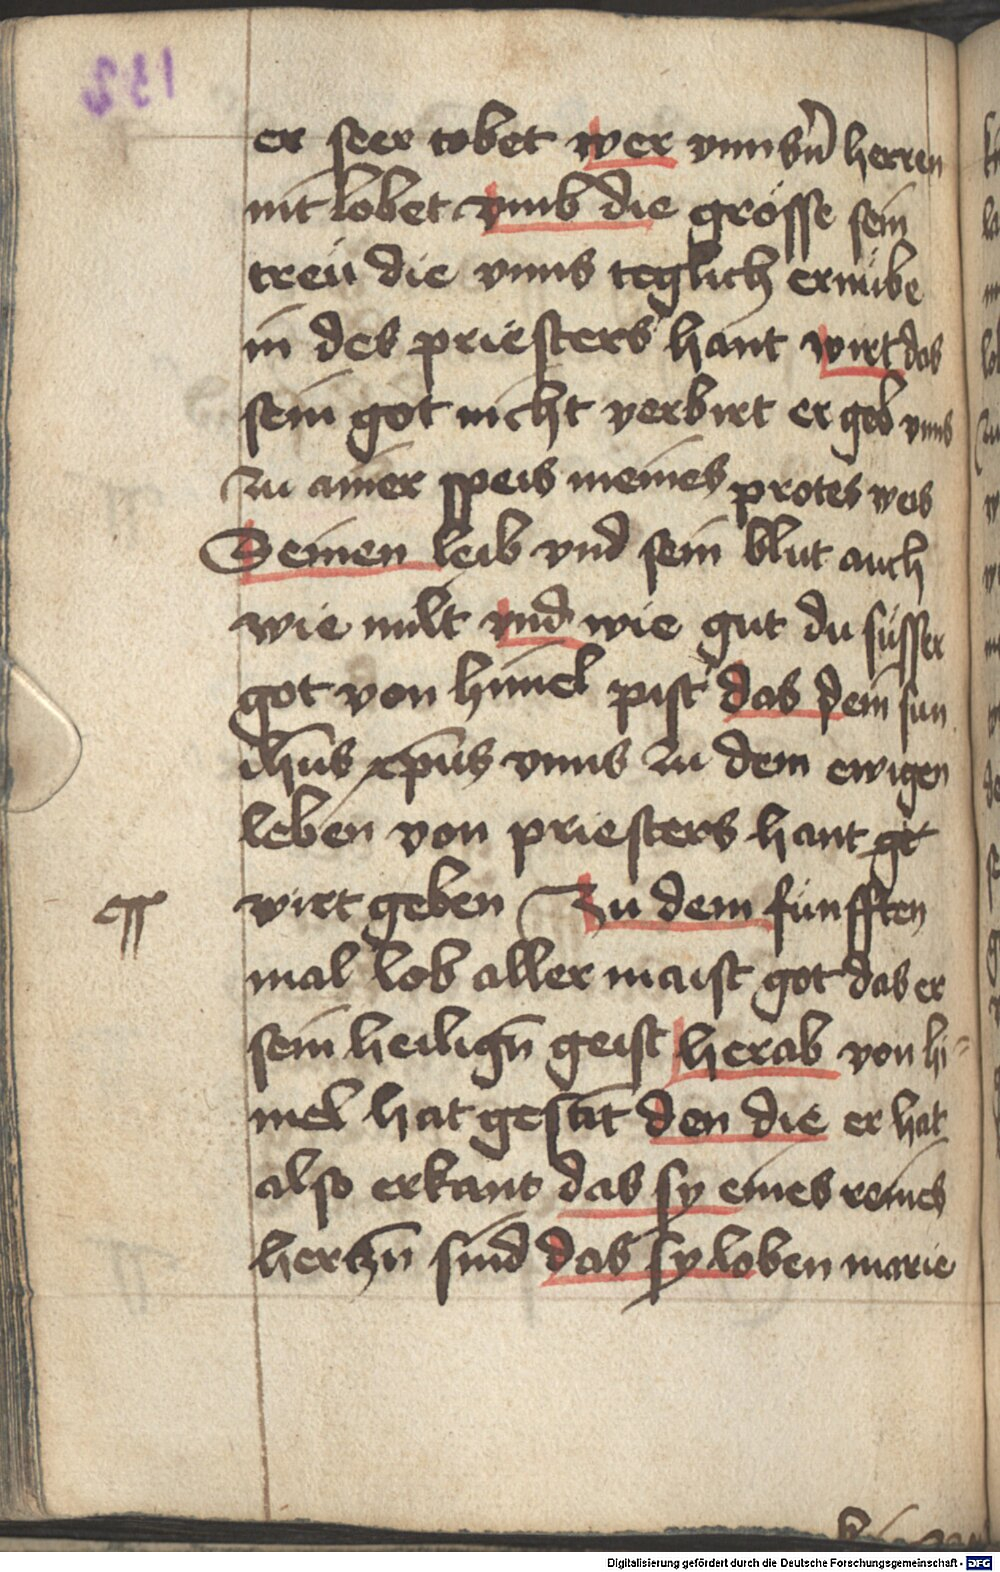 er seer tobet wer vnnsn̄ herren
nit lobet vmb die grösse sein
treü die vnns teglich ernübe
in des priesters hant wirt das
sein got nicht verbirt er geb vnns
zu ainer speis meines protes weis
Seinen leib vnd sein blut auch
wie milt vnd wie gut du süsser
got von himel pist das dein sun
ihūs xp̄us vnns zu dem ewigen
leben von priesters hant
wirt geben Zu dem funfften
mal lob aller maist got das er
sein heilign̄ geist herab von hi=
mel hat gesāt den die er hat
also erkant das sy eines reines
hertzn̄ sind das sy loben marie
Digitalisierung gefördert durch die Deutsche Forschungsgemeinschaft - DFG